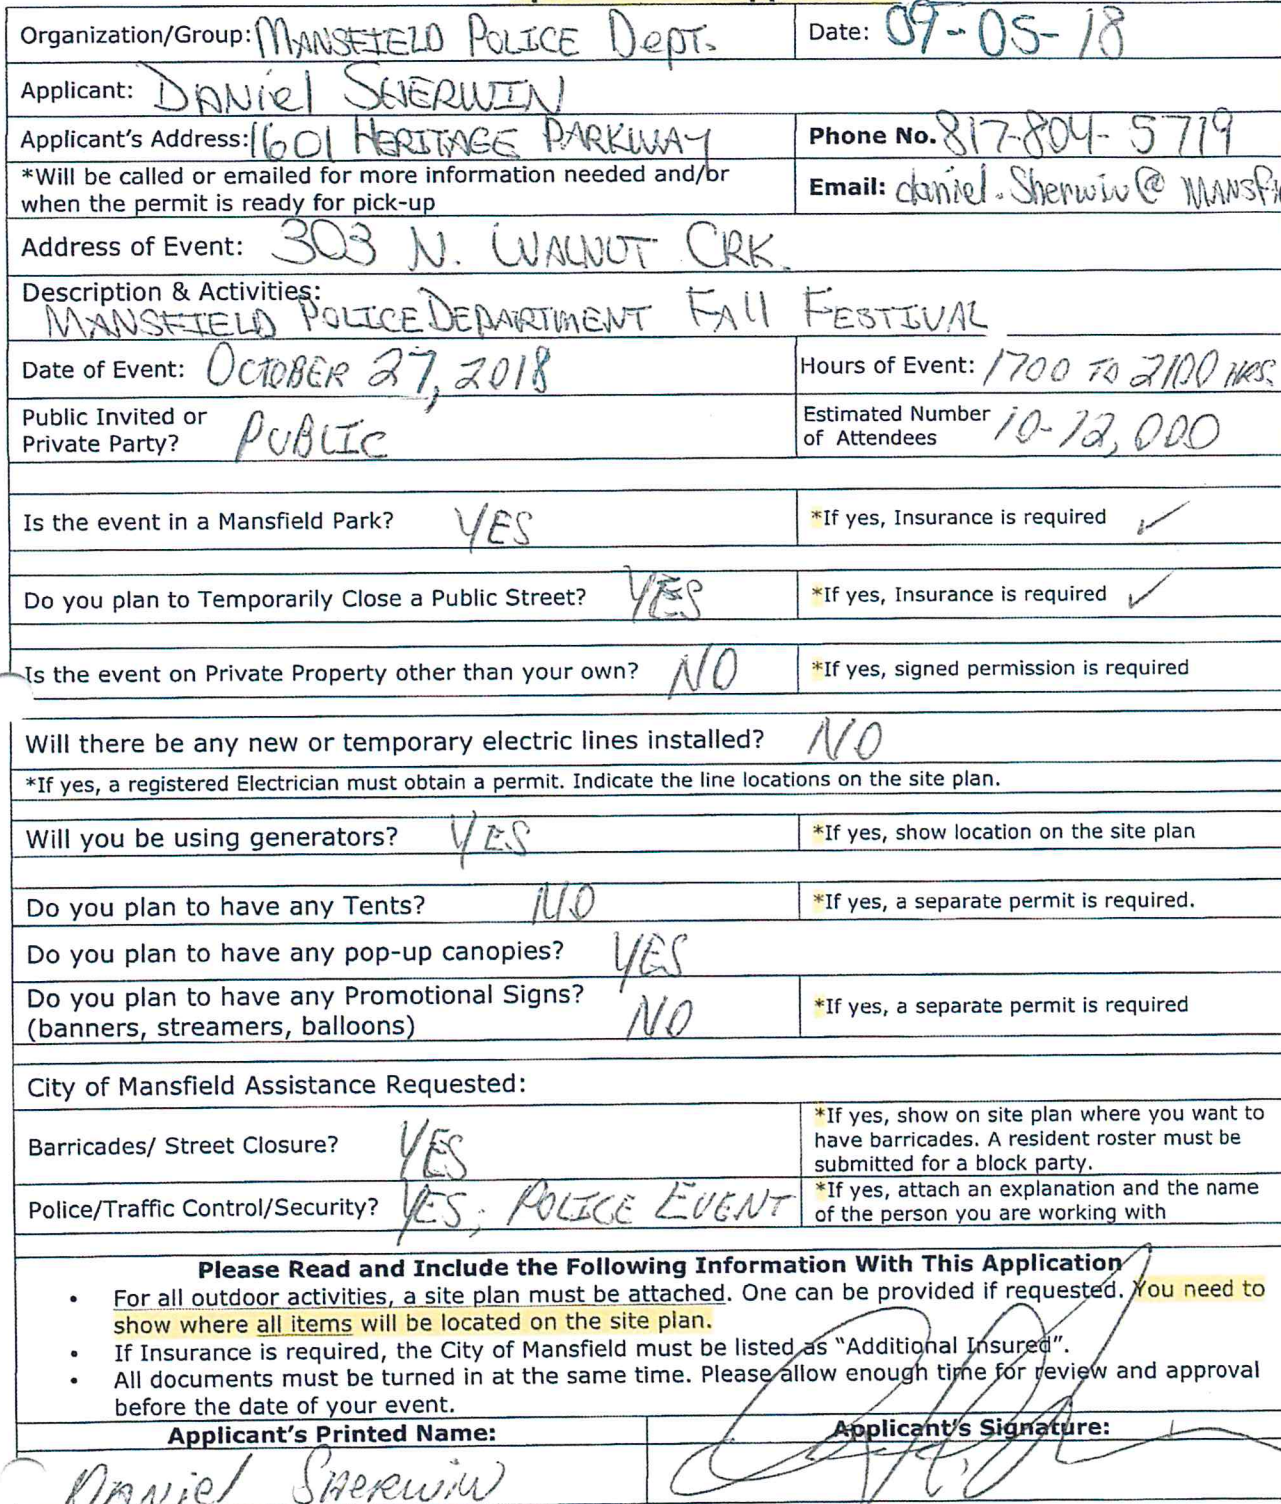 Organization/Group: MANSFIELD POLICE Dept. Date: 09-05-18
Applicant: DANiel SHERWIN
Applicant's Address: 1601 HERITAGE PARKWAY Phone No. 817-804-5719
*Will be called or emailed for more information needed and/or
when the permit is ready for pick-up Email: daniel.Sherwin@
Address of Event: 303 N. WALNUT CRK.
Description & Activities:
MANSFIELD POLICE DEPARTMENT FAll FESTIVAL
Date of Event: OCTOBER 27, 2018 Hours of Event: 1700 TO 2100 HRS.
Public Invited or
Private Party? PUBLIC Estimated Number
of Attendees 10-12,000
Is the event in a Mansfield Park? YES *If yes, Insurance is required ✓
Do you plan to Temporarily Close a Public Street? YES *If yes, Insurance is required ✓
Is the event on Private Property other than your own? NO *If yes, signed permission is required
Will there be any new or temporary electric lines installed? NO
*If yes, a registered Electrician must obtain a permit. Indicate the line locations on the site plan.
Will you be using generators? YES *If yes, show location on the site plan
Do you plan to have any Tents? NO *If yes, a separate permit is required.
Do you plan to have any pop-up canopies? YES
Do you plan to have any Promotional Signs?
(banners, streamers, balloons) NO *If yes, a separate permit is required
City of Mansfield Assistance Requested:
Barricades/ Street Closure? YES *If yes, show on site plan where you want to
have barricades. A resident roster must be
submitted for a block party.
Police/Traffic Control/Security? YES; POLICE EVENT *If yes, attach an explanation and the name
of the person you are working with
Please Read and Include the Following Information With This Application
• For all outdoor activities, a site plan must be attached. One can be provided if requested. You need to
show where all items will be located on the site plan.
• If Insurance is required, the City of Mansfield must be listed as "Additional Insured".
• All documents must be turned in at the same time. Please allow enough time for review and approval
before the date of your event.
Applicant's Printed Name: Applicant's Signature:
DANiel SHERWIN